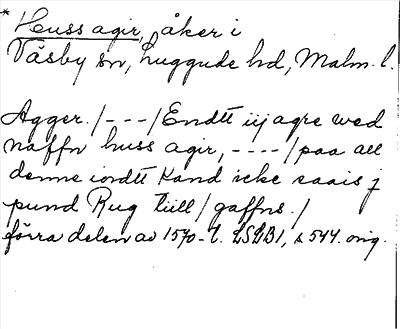 * Huss agir, åker i
Väsby sn, Luggude hd, Malm. l.
Agger. /---/ Endtt iij agre wed
naffn huss agir, ----/ paa all
denne iordtt kand icke saais j
pund Rug till / gaffns. /
förra delen av 1570-t. LSÄB1, s 544. orig.